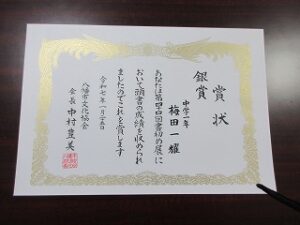 賞状
銀賞
中学一年
梅田一耀
あなたは第四十四回書初め展に
おいて頭書の成績を収められ
ましたのでこれを賞します
令和七年一月二十五日
八幡市文化協会
会長 中村豊美